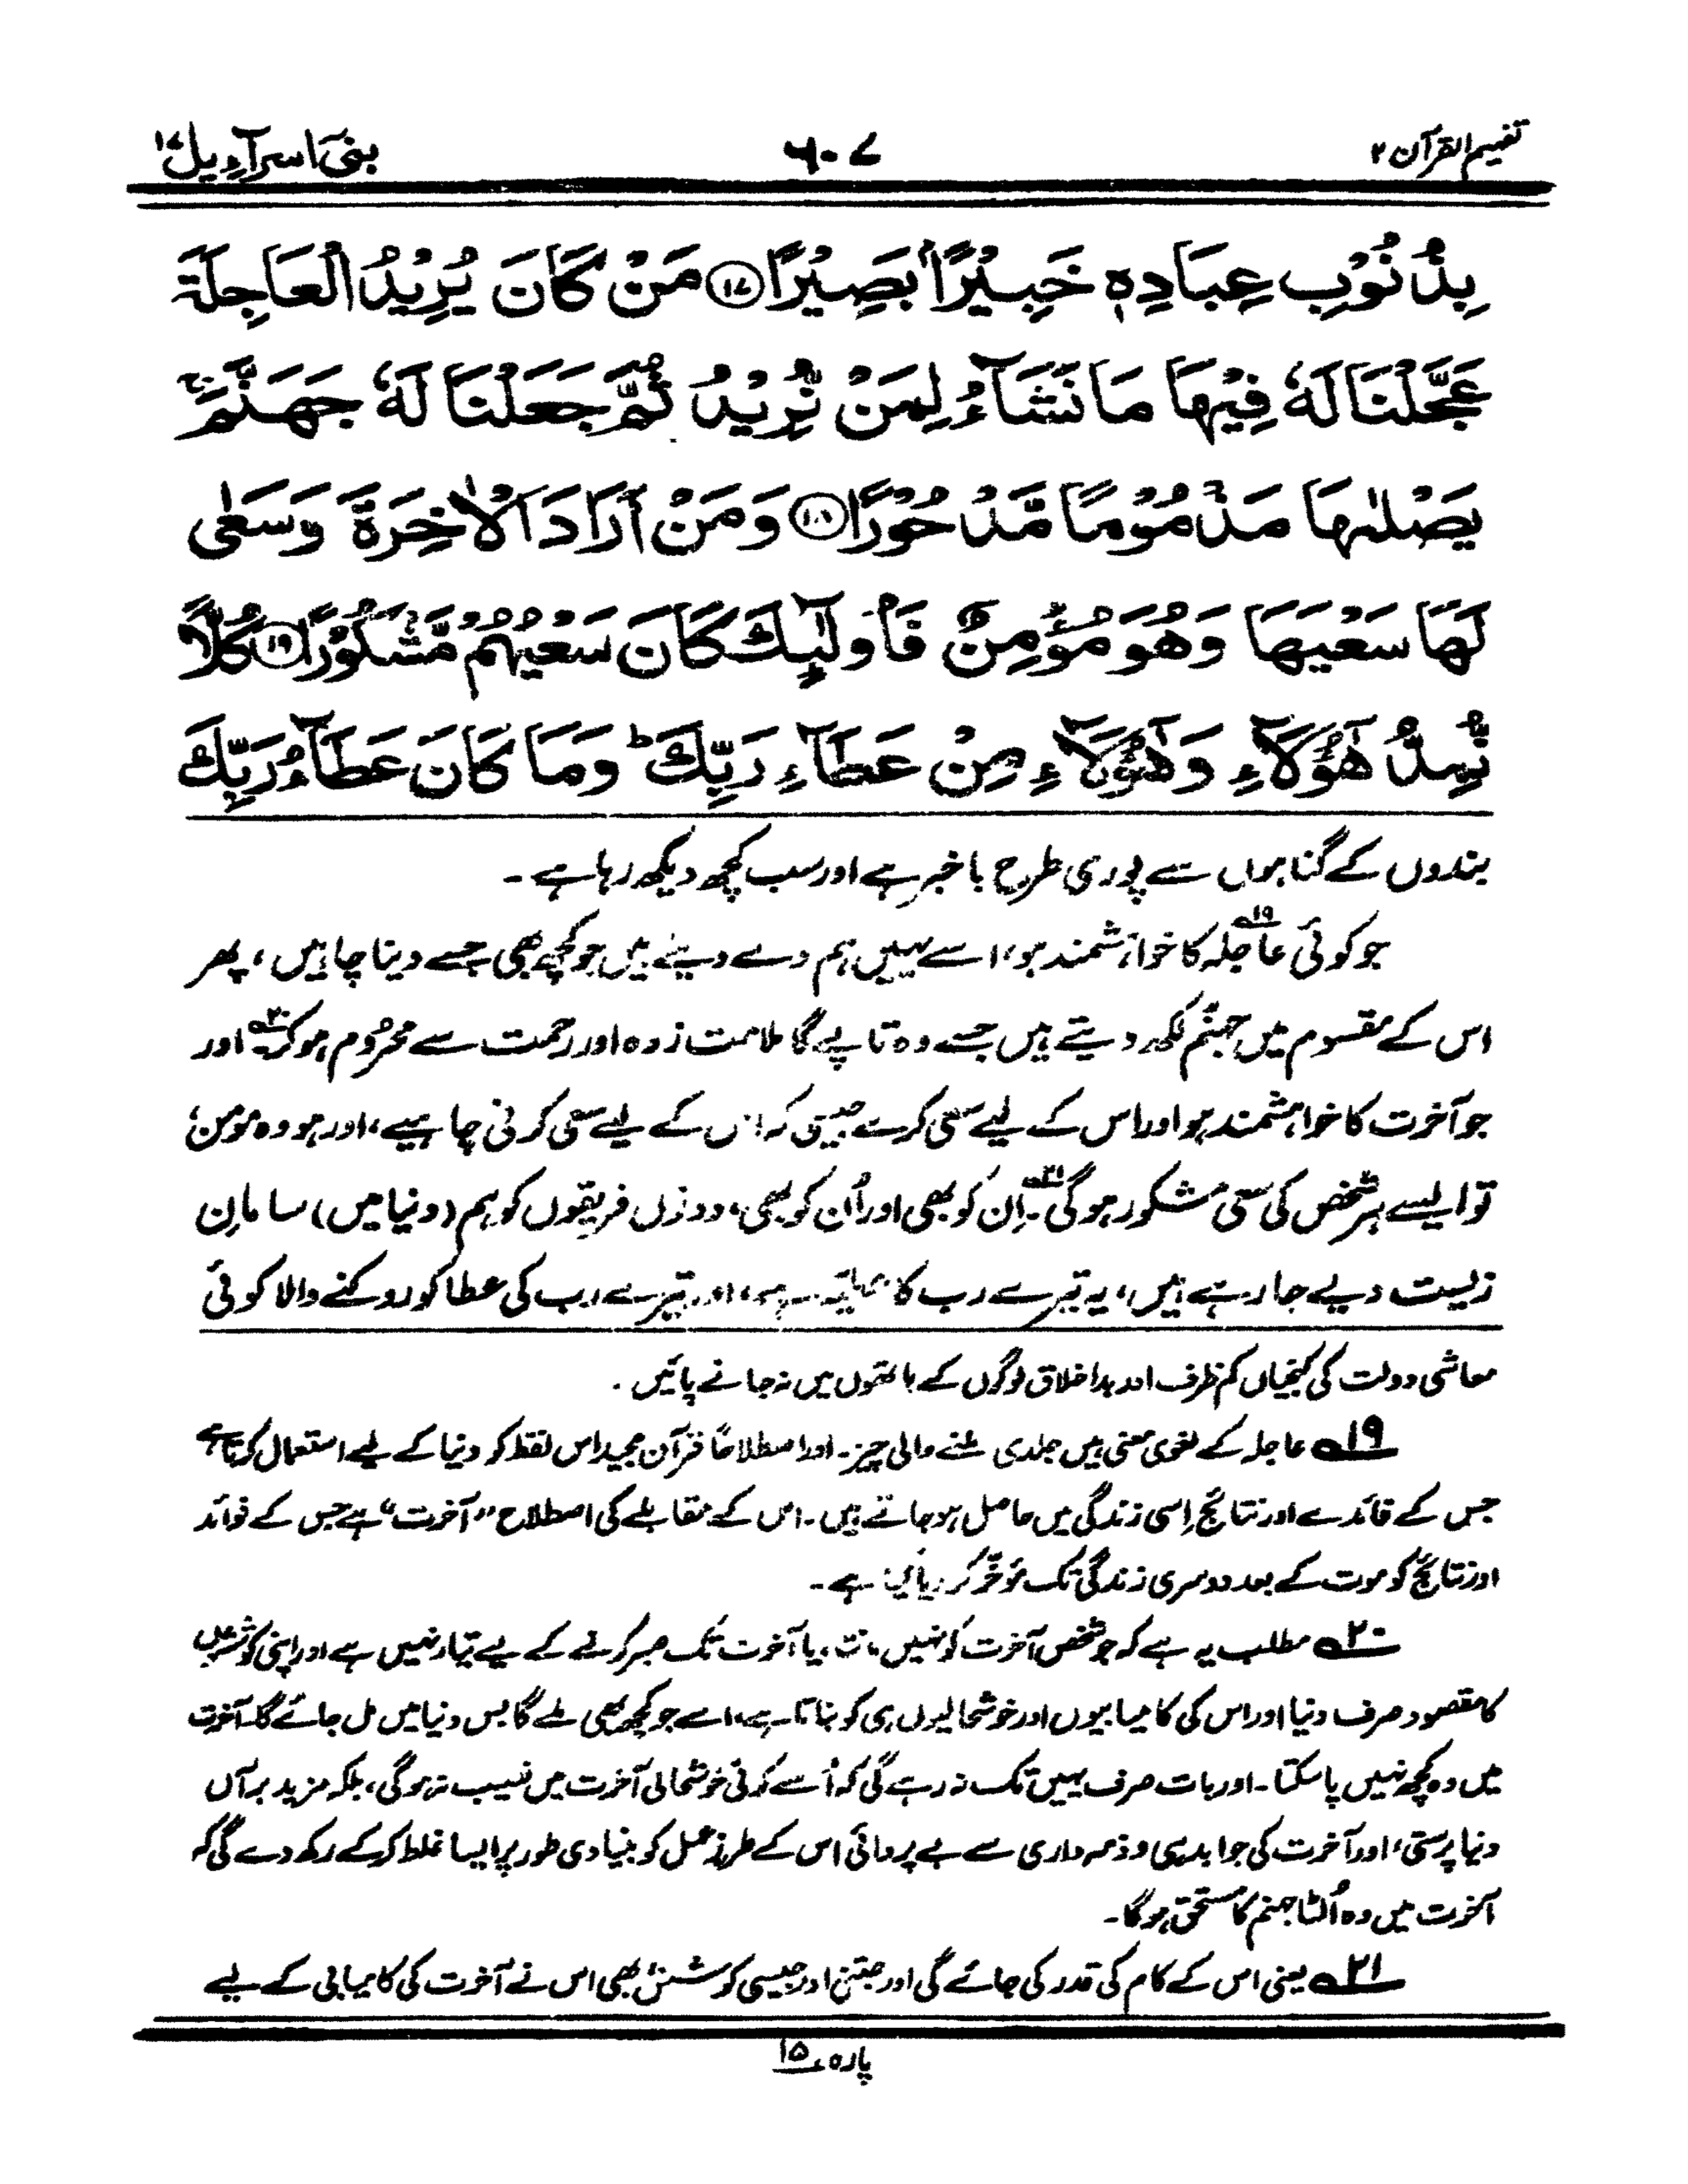 تفہیم القرآن ۲
۶۰۷
بنیٓ اسرآءیل ۱۷
بِذُنُوْبِ عِبَادِهٖ خَبِيْرًۢا بَصِيْرًا ﴿۱۷﴾ مَنْ كَانَ يُرِيْدُ الْعَاجِلَةَ
عَجَّلْنَا لَهٗ فِيْهَا مَا نَشَآءُ لِمَنْ نُّرِيْدُ ثُمَّ جَعَلْنَا لَهٗ جَهَنَّمَ ۚ
يَصْلٰىهَا مَذْمُوْمًا مَّدْحُوْرًا ﴿۱۸﴾ وَمَنْ اَرَادَ الْاٰخِرَةَ وَسَعٰى
لَهَا سَعْيَهَا وَهُوَ مُؤْمِنٌ فَاُولٰٓئِكَ كَانَ سَعْيُهُمْ مَّشْكُوْرًا ﴿۱۹﴾ كُلًّا
نُّمِدُّ هٰٓؤُلَآءِ وَهٰٓؤُلَآءِ مِنْ عَطَآءِ رَبِّكَ ؕ وَمَا كَانَ عَطَآءُ رَبِّكَ
بندوں کے گناہوں سے پوری طرح باخبر ہے اور سب کچھ دیکھ رہا ہے۔
جو کوئی عاجلہ۱۹ کا خواہشمند ہو، اسے یہیں ہم دے دیتے ہیں جو کچھ بھی جسے دینا چاہیں، پھر
اس کے مقسوم میں جہنّم لکھ دیتے ہیں جسے وہ تاپے گا ملامت زدہ اور رحمت سے محرُوم ہو کر۲۰۔ اور
جو آخرت کا خواہشمند ہو اور اس کے لیے سعی کرے جیسی کہ اس کے لیے سعی کرنی چاہیے، اور ہو وہ مومن،
تو ایسے ہر شخص کی سعی مشکور ہوگی۲۱۔ اِن کو بھی اور اُن کو بھی، دونوں فریقوں کو ہم (دنیا میں) سامانِ
زیست دیے جا رہے ہیں، یہ تیرے رب کا عطیّہ ہے، اور تیرے رب کی عطا کو روکنے والا کوئی
معاشی دولت کی کنجیاں کم ظرف اور بداخلاق لوگوں کے ہاتھوں میں نہ جانے پائیں۔
۱۹ عاجلہ کے لغوی معنی ہیں جلدی ملنے والی چیز۔ اور اصطلاحاً قرآن مجید اس لفظ کو دنیا کے لیے استعمال کرتا ہے
جس کے فائدے اور نتائج اِسی زندگی میں حاصل ہو جاتے ہیں۔ اس کے مقابلے کی اصطلاح ”آخرت“ ہے جس کے فوائد
اور نتائج کو موت کے بعد دوسری زندگی تک مؤخّر کر دیا گیا ہے۔
۲۰ مطلب یہ ہے کہ جو شخص آخرت کو نہیں مانتا، یا آخرت تک صبر کرنے کے لیے تیار نہیں ہے اور اپنی کوششوں
کا مقصود صرف دنیا اور اس کی کامیابیوں اور خوشحالیوں ہی کو بناتا ہے، اسے جو کچھ بھی ملے گا بس دنیا میں مل جائے گا۔ آخرت
میں وہ کچھ نہیں پا سکتا۔ اور بات صرف یہیں تک نہ رہے گی کہ اُسے کوئی خوشحالی آخرت میں نصیب نہ ہوگی، بلکہ مزید برآں
دنیا پرستی، اور آخرت کی جوابدہی و ذمہ داری سے بے پروائی اس کے طرزِ عمل کو بنیادی طور پر ایسا غلط کر کے رکھ دے گی کہ
آخرت میں وہ اُلٹا جہنم کا مستحق ہوگا۔
۲۱ یعنی اس کے کام کی قدر کی جائے گی اور جتنی اور جیسی کوشش بھی اس نے آخرت کی کامیابی کے لیے
پارہ ۱۵